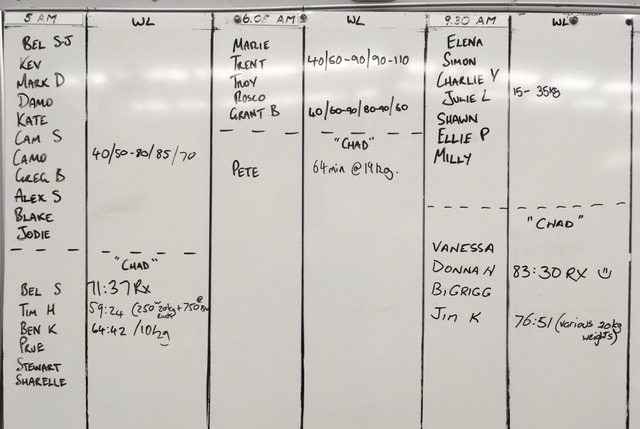 5 AM WL
BEL S-J
KEV
MARK D
DAMO
KATE
CAM S
CAMO 40/50-80/85/70
GREG B
ALEX S
BLAKE
JODIE
"CHAD"
BEL S 71:37 RX
TIM H 59:24 (250 20kg + 750
BEN K 64:42 /10kg
PRUE
STEWART
SHARELLE
6.05 AM WL
MARIE
TRENT 40/50-90/90-110
TROY
ROSCO
GRANT B 40/60-90/80-90/60
"CHAD"
PETE 64min @ 14kg.
9.30 AM WL
ELENA
SIMON
CHARLIE V
JULIE L 15-35kg
SHAWN
ELLIE P
MILLY
"CHAD"
VANESSA
DONNA H 83:30 RX
BIGRIGG
JIM K 76:51 (various 20kg
weights)